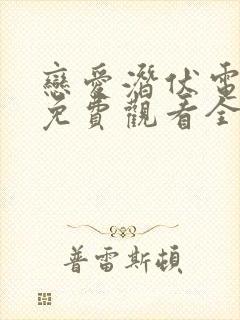 戀愛潛伏電
免費觀看全
普雷斯頓